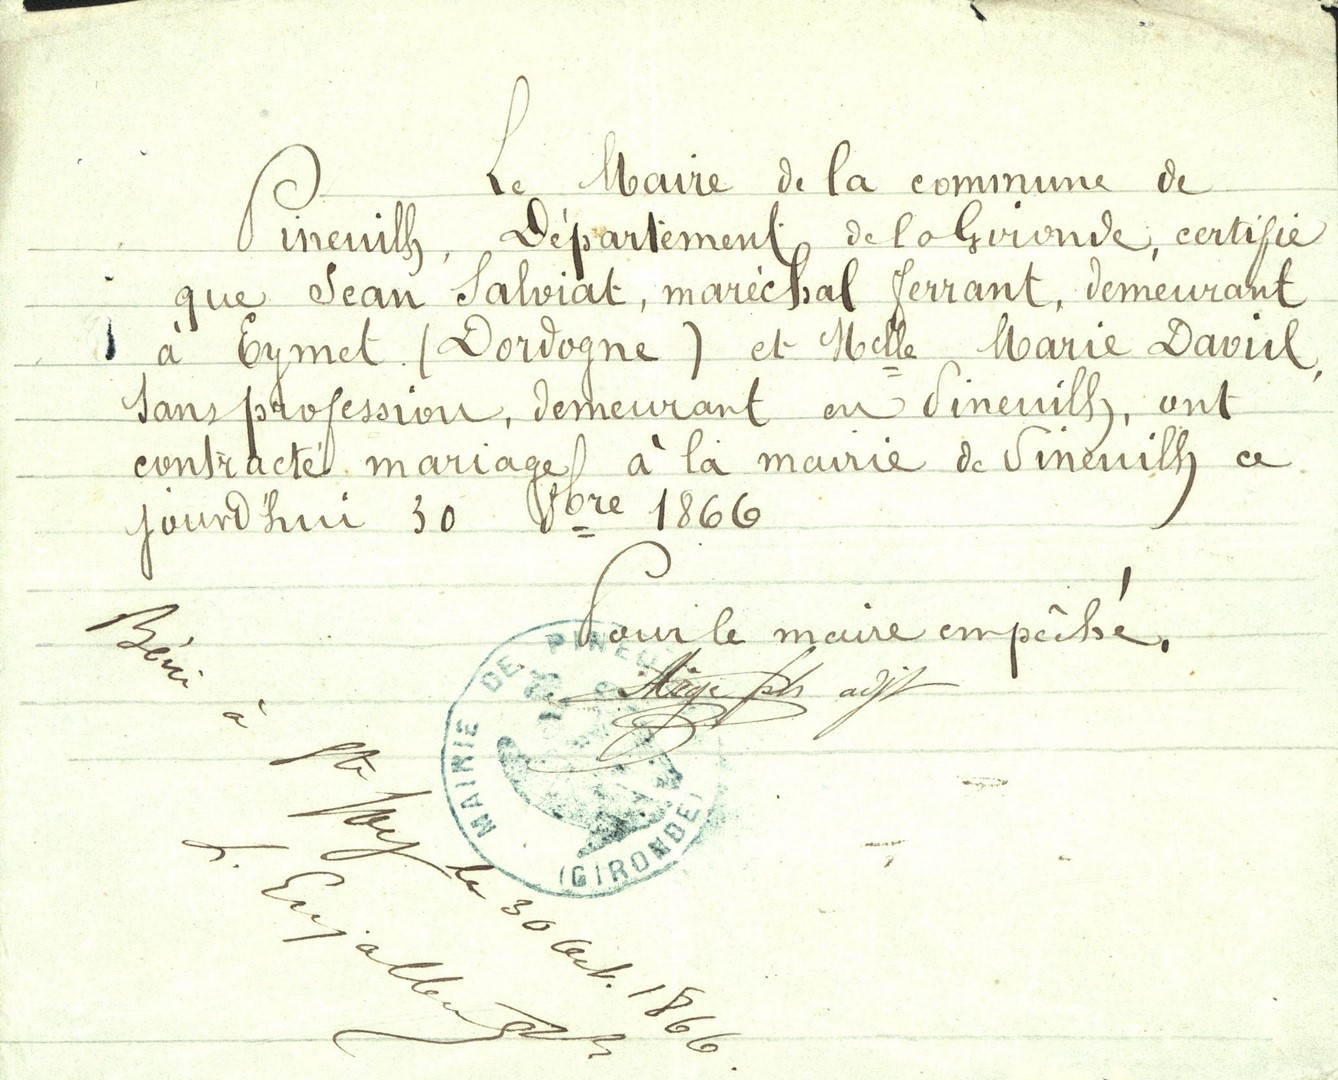 Le Maire de la commune de
Pineuilh, Département de la Gironde, certifie
que Jean Salviat, maréchal ferrant, demeurant
à Eymet (Dordogne) et Melle Marie David,
sans profession, demeurant en Pineuilh, ont
contracté mariage à la mairie de Pineuilh ce
jourd'hui 30 8bre 1866
Pour le maire empêché,
adjt
MAIRIE DE PINEUILH
(GIRONDE)
Béni à Ste Foy le 30 Oct. 1866.